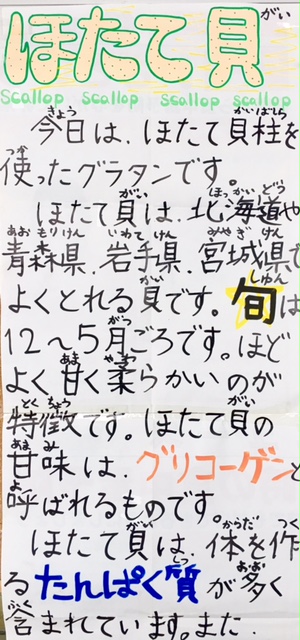 ほたて貝
scallop scallop scallop scallop
今日は、ほたて貝柱を
使ったグラタンです。
ほたて貝は、北海道や
青森県、岩手県、宮城県で
よくとれる貝です。旬は
12～5月ごろです。ほど
よく甘く柔らかいのが
特徴です。ほたて貝の
甘味は、グリコーゲンと
呼ばれるものです。
ほたて貝は、体を作
るたんぱく質が多く
含まれています。また、